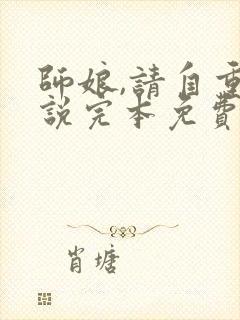 師娘,請自重
說完本免費
肖瑭